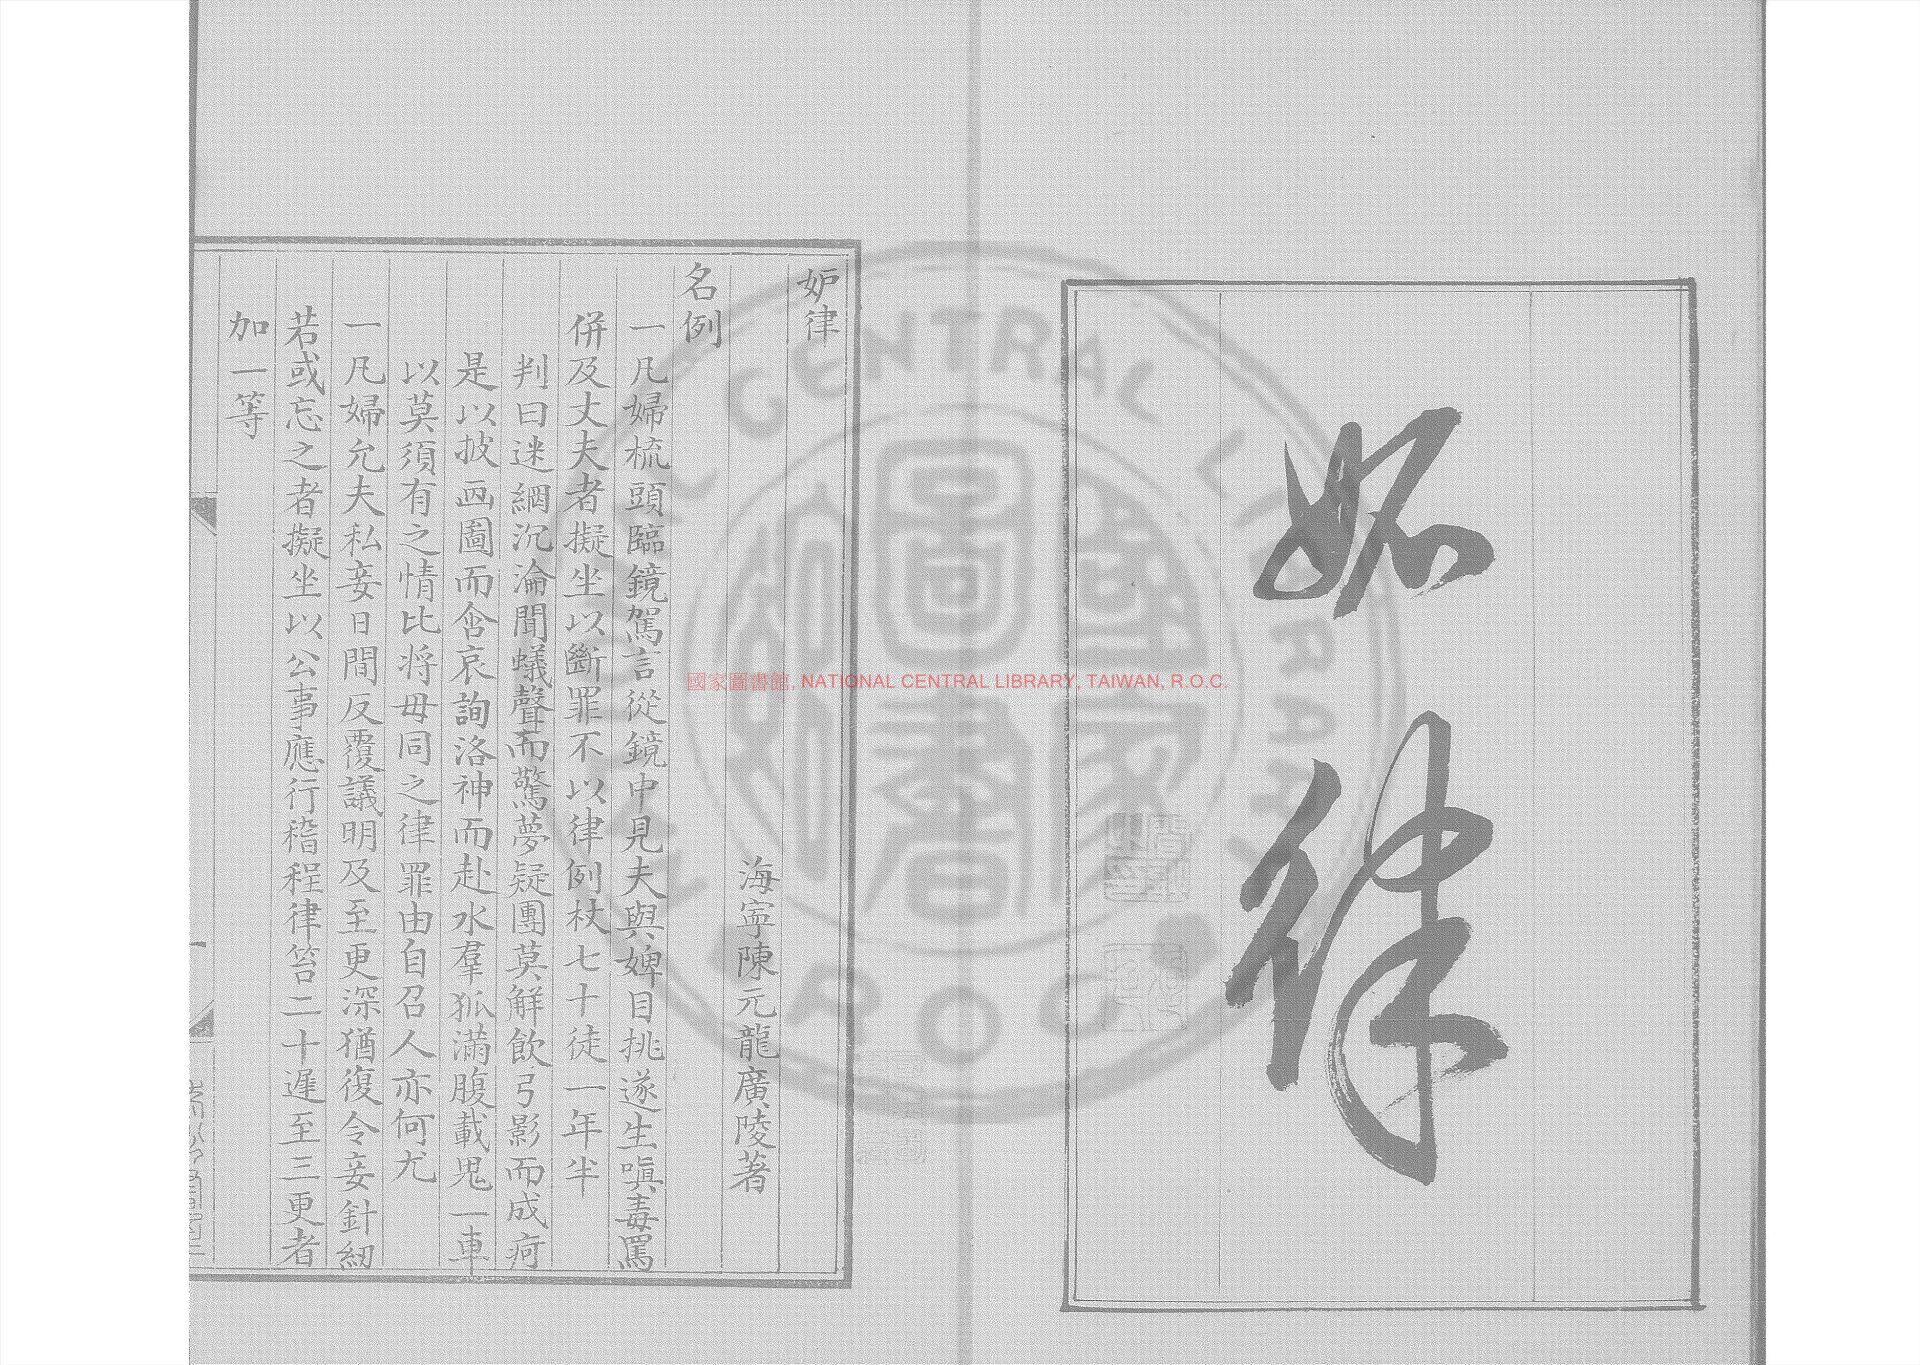 妬律
妒律
海寧陳元龍廣陵著
名例
一凡婦梳頭臨鏡駕言從鏡中見夫與婢目挑遂生嗔毒罵
併及丈夫者擬坐以斷罪不以律例杖七十徒一年半
判曰迷網沉淪聞蟻聲而驚夢疑團莫觧飲弓影而成疴
是以披画圖而含哀詢洛神而赴水羣狐滿腹載鬼一車
以莫須有之情比将毋同之律罪由自召人亦何尤
一凡婦允夫私妾日間反覆議明及至更深猶復令妾針紉
若或忘之者擬坐以公事應行稽程律笞二十遲至三更者
加一等
國家圖書館, NATIONAL CENTRAL LIBRARY, TAIWAN, R.O.C.
國家圖書館
NATIONAL CENTRAL LIBRARY
R O C